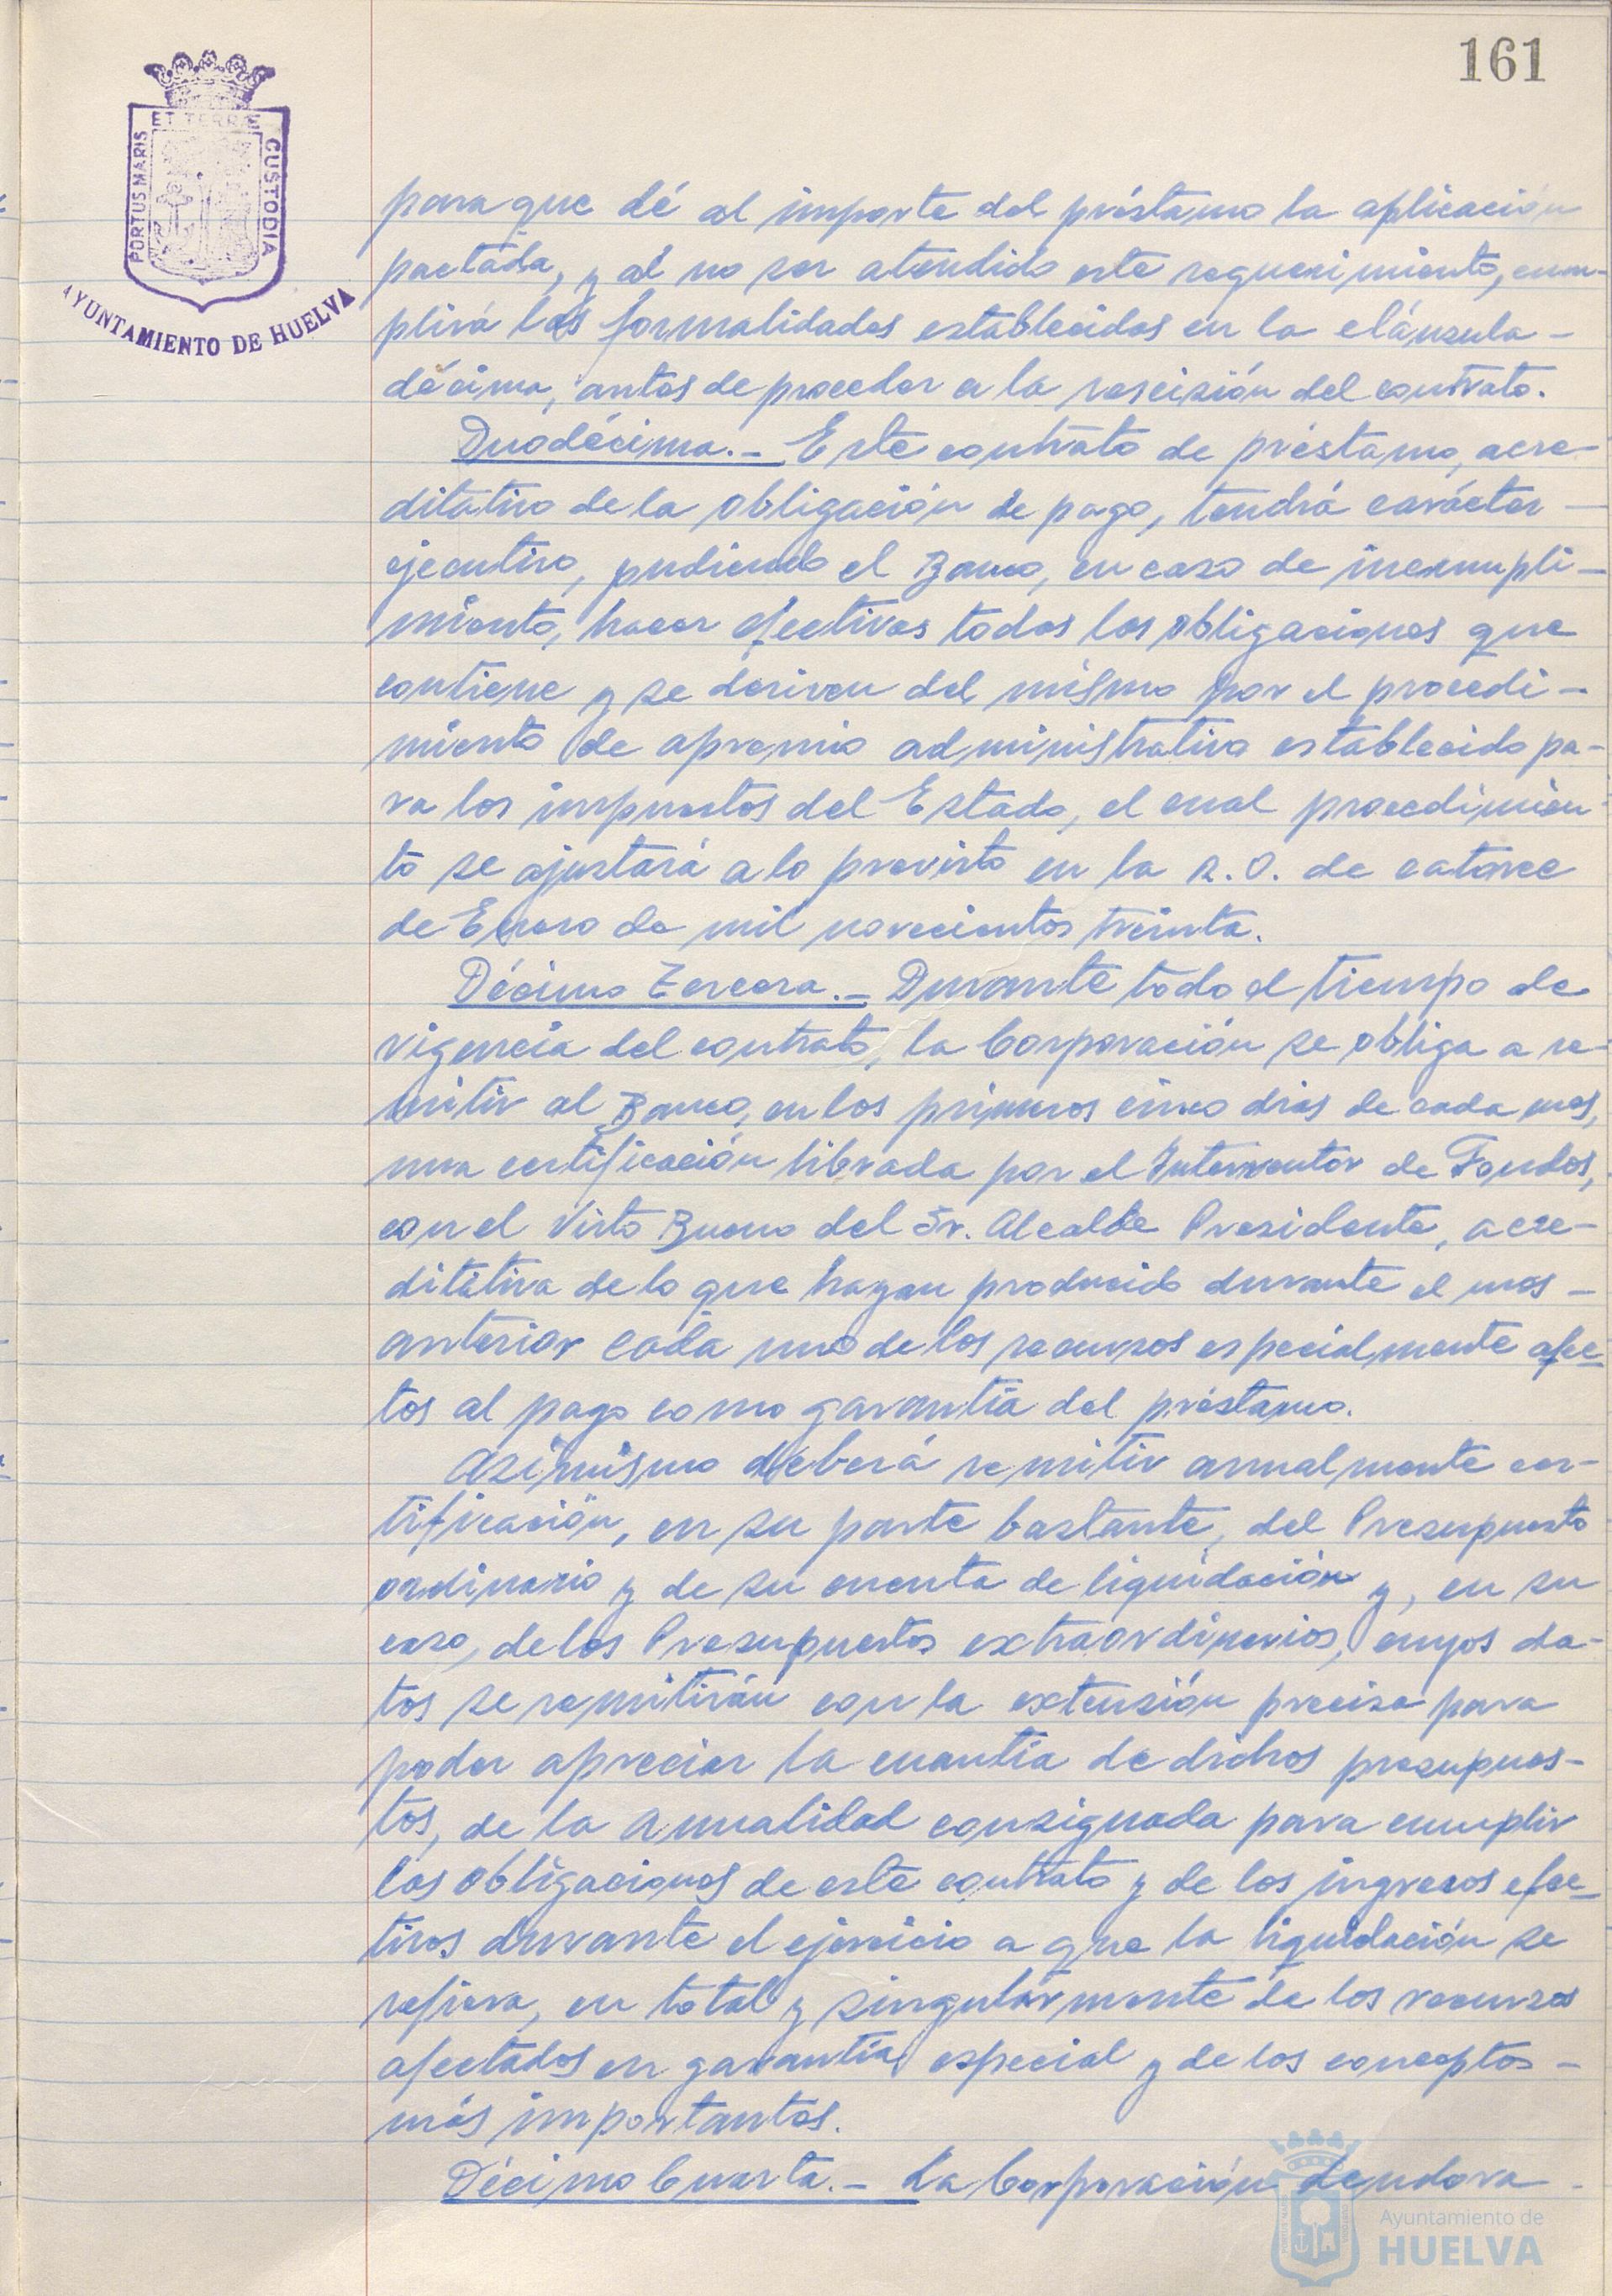 161
ET TERRÆ
PORTUS MARIS
CUSTODIA
AYUNTAMIENTO DE HUELVA
para que dé al importe del préstamo la aplicación
pactada, y al no ser atendido este requerimiento, cum-
plirá las formalidades establecidas en la cláusula -
décima, antes de proceder a la rescisión del contrato.
Duodécima.- Este contrato de préstamo, acre-
ditativo de la obligación de pago, tendrá carácter -
ejecutivo, pudiendo el Banco, en caso de incumpli-
miento, hacer efectivas todas las obligaciones que
contiene y se deriven del mismo por el procedi-
miento de apremio administrativo establecido pa-
ra los impuestos del Estado, el cual procedimien-
to se ajustará a lo previsto en la R.O. de catorce
de Enero de mil novecientos treinta.
Décimo Tercera.- Durante todo el tiempo de
vigencia del contrato, la Corporación se obliga a re-
mitir al Banco, en los primeros cinco dias de cada mes,
una certificación librada por el Interventor de Fondos,
con el Visto Bueno del Sr. Alcalde Presidente, acre-
ditativa de lo que hayan producido durante el mes -
anterior cada uno de los recursos especialmente afec-
tos al pago como garantía del préstamo.
Asimismo deberá remitir anualmente cer-
tificación, en su parte bastante, del Presupuesto
ordinario y de su cuenta de liquidación y, en su
caso, de los Presupuestos extraordinarios, cuyos da-
tos se remitirán con la extensión precisa para
poder apreciar la cuantía de dichos presupues-
tos, de la anualidad consignada para cumplir
las obligaciones de este contrato y de los ingresos efec-
tivos durante el ejercicio a que la liquidación se
refiera, en total y singularmente de los recursos
afectados en garantía especial y de los conceptos -
más importantes.
Décimo Cuarta.- La Corporación deudora -
Ayuntamiento de
HUELVA